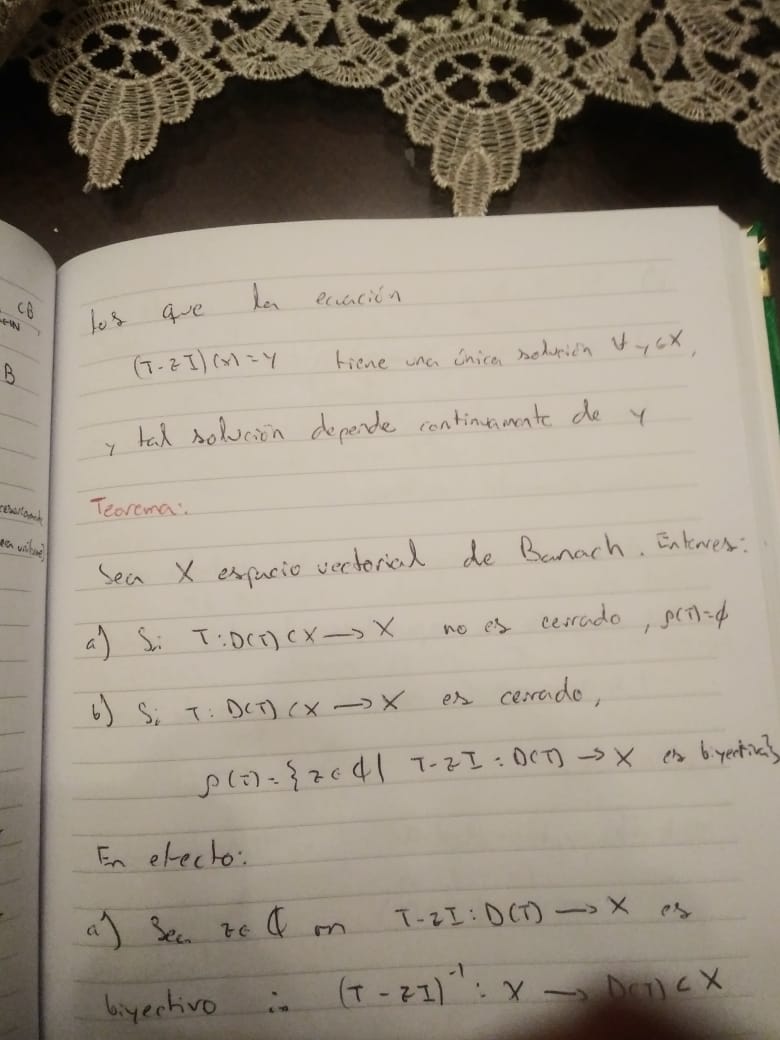 CB
B
los que la ecuación
(T-zI)(x)=y tiene una única solución ∀ y∈X,
y tal solución depende continuamente de y
Teorema:
Sea X espacio vectorial de Banach. Entonces:
a) Si T:D(T)⊂X→X no es cerrado, ρ(T)=∅
b) Si T:D(T)⊂X→X es cerrado,
ρ(T)={z∈ℂ| T-zI:D(T)→X es biyectiva}
En efecto:
a) Sea z∈ℂ en T-zI:D(T)→X es
biyectivo ∴ (T-zI)⁻¹: X → D(T)⊂X